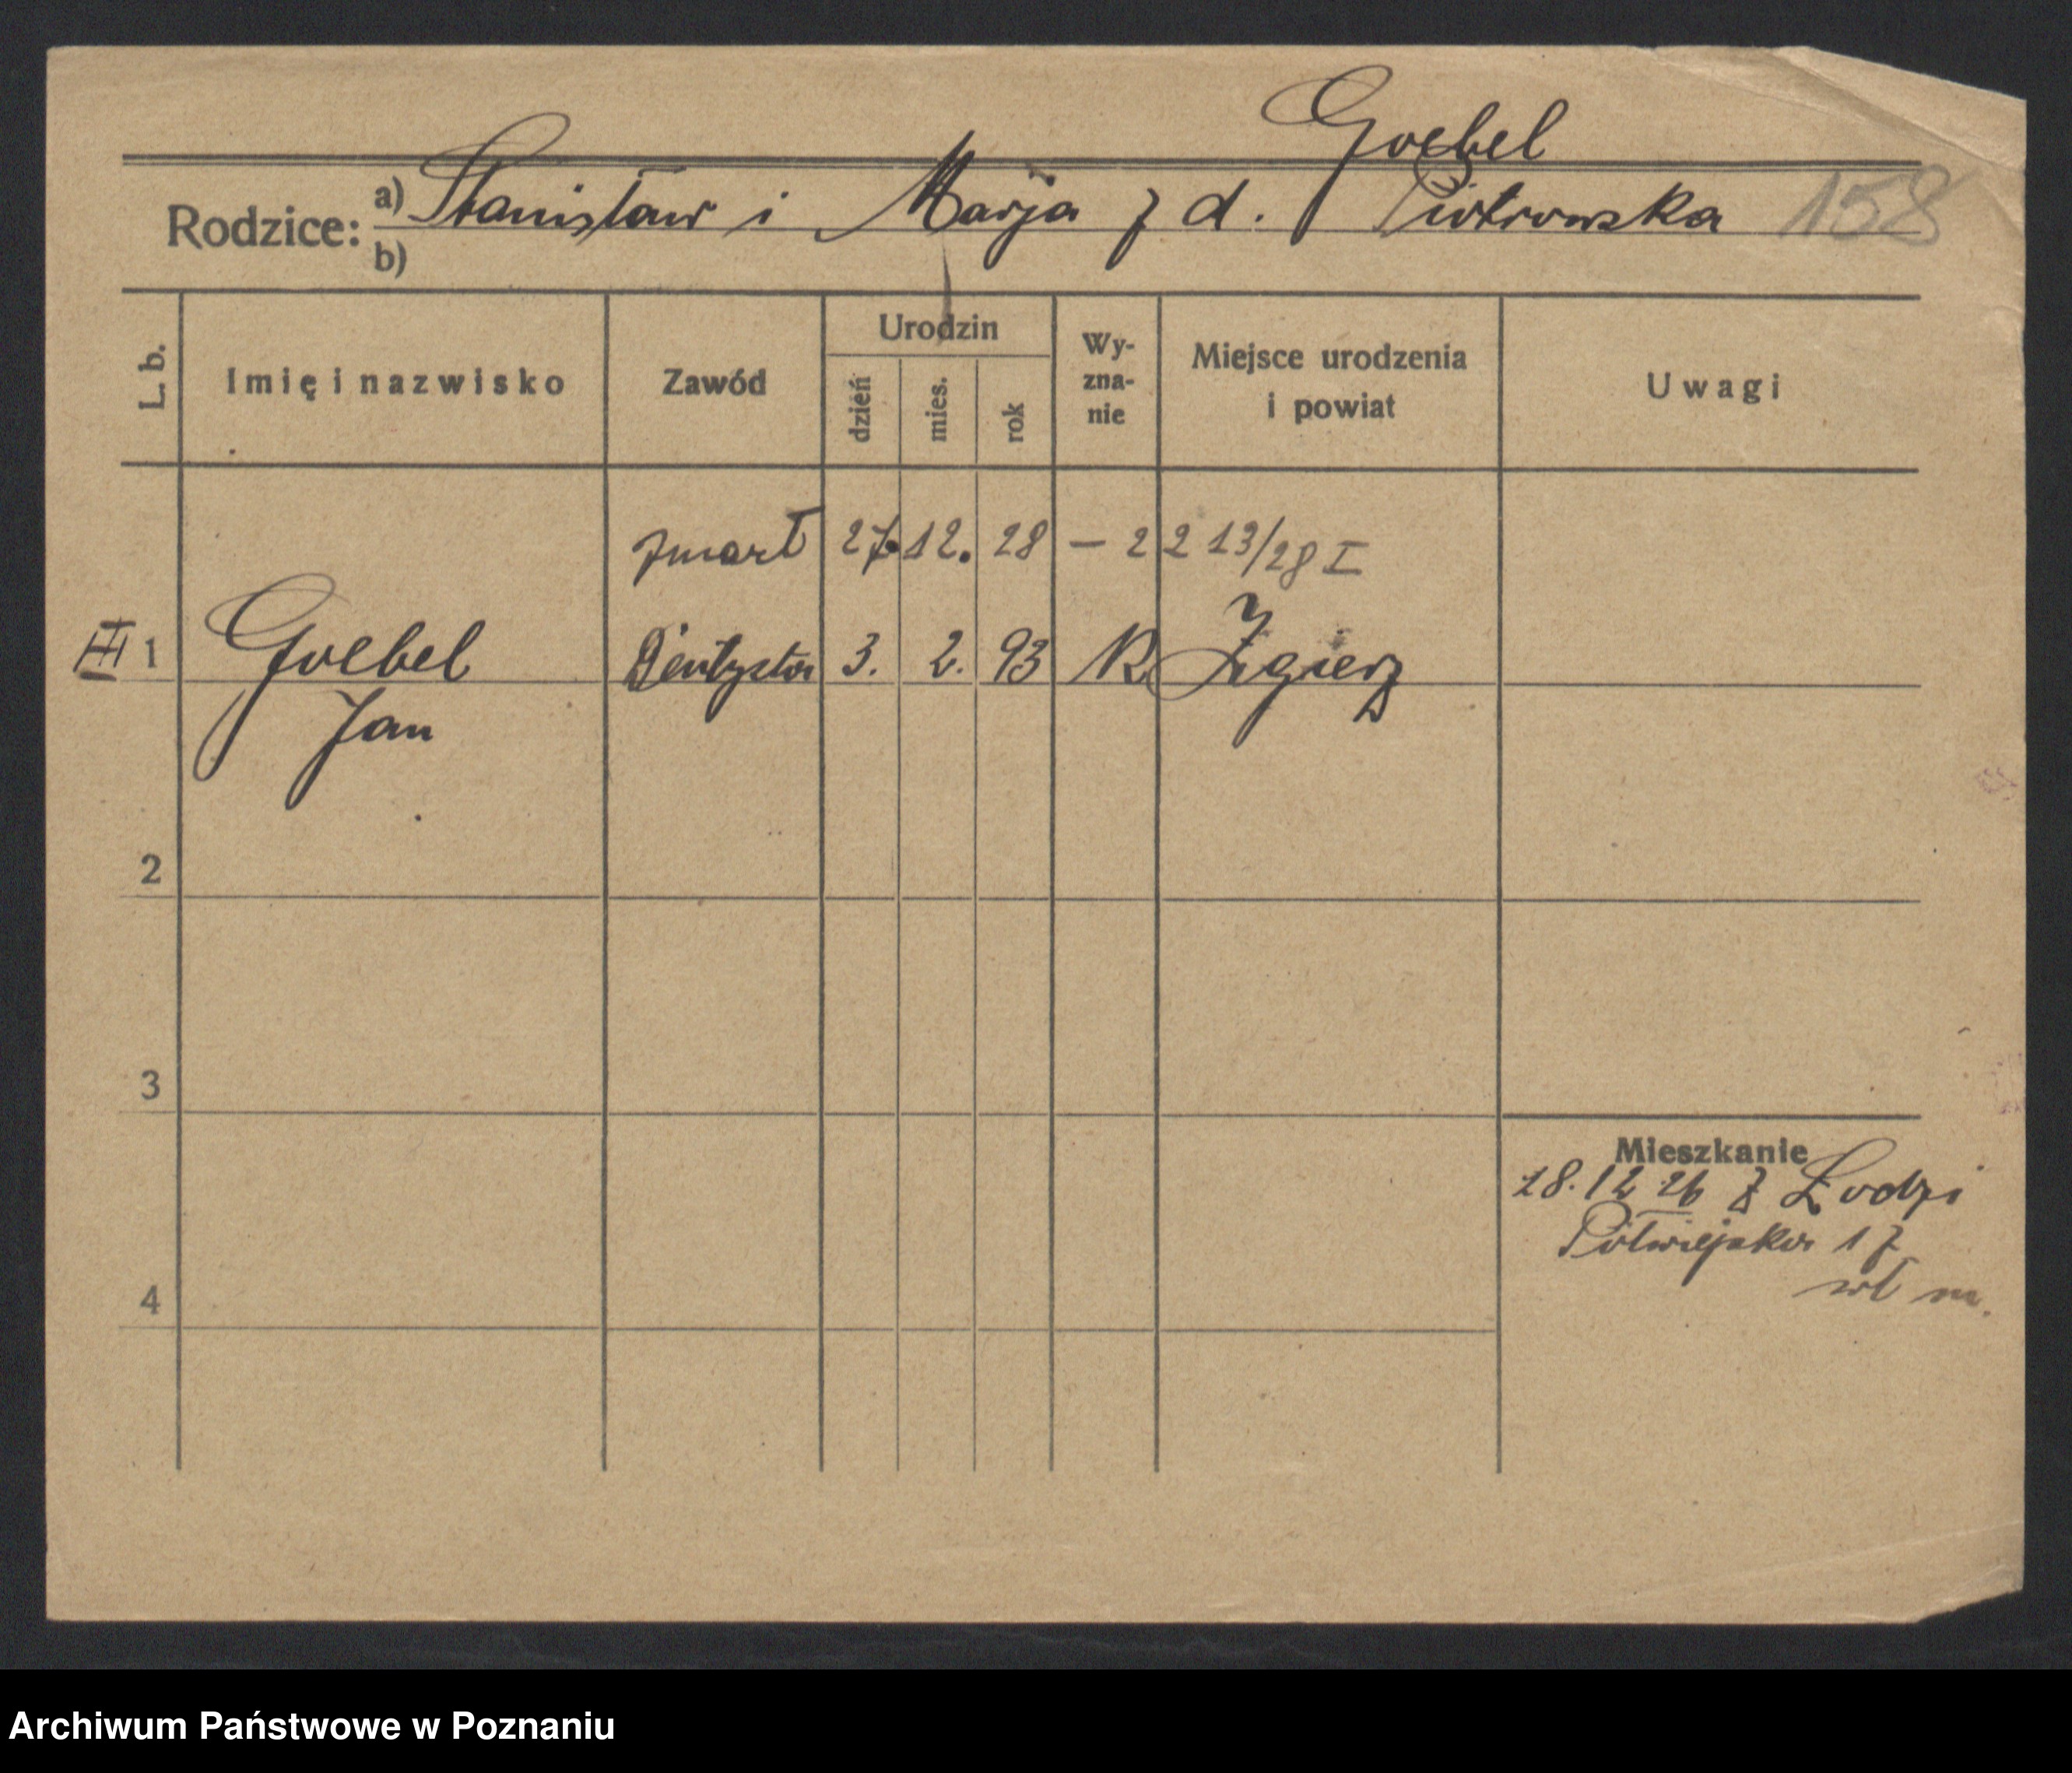 Goebel
Rodzice: a) Stanisław i Marja z d. Piotrowska 158
b)
L. b. Imię i nazwisko Zawód Urodzin dzień mies. rok Wy-zna-nie Miejsce urodzenia i powiat Uwagi
zmarł 27. 12. 28 — 2213/28 I
III 1 Goebel Dentysta 3. 2. 93 R Zgierz
Jan
2
3
Mieszkanie
18.12 26 z Łodzi
Półwiejska 17
wł m.
4
Archiwum Państwowe w Poznaniu